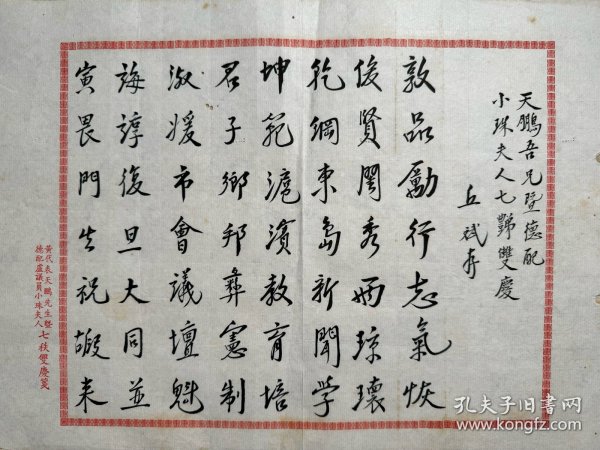 天鵬吾兄暨德配
小珠夫人七豑雙慶
丘斌存
敦品勵行志氣恢
俊賢閨秀兩琼瓌
乾綱東島新聞学
坤範滬濱教育培
君子鄉邦彝憲制
淑媛市會議壇魁
誨諄復旦大同並
寅畏門生祝嘏来
黃代表天鵬先生暨
德配盧議員小珠夫人七秩雙慶箋
孔夫子旧書网
www.kongfz.com